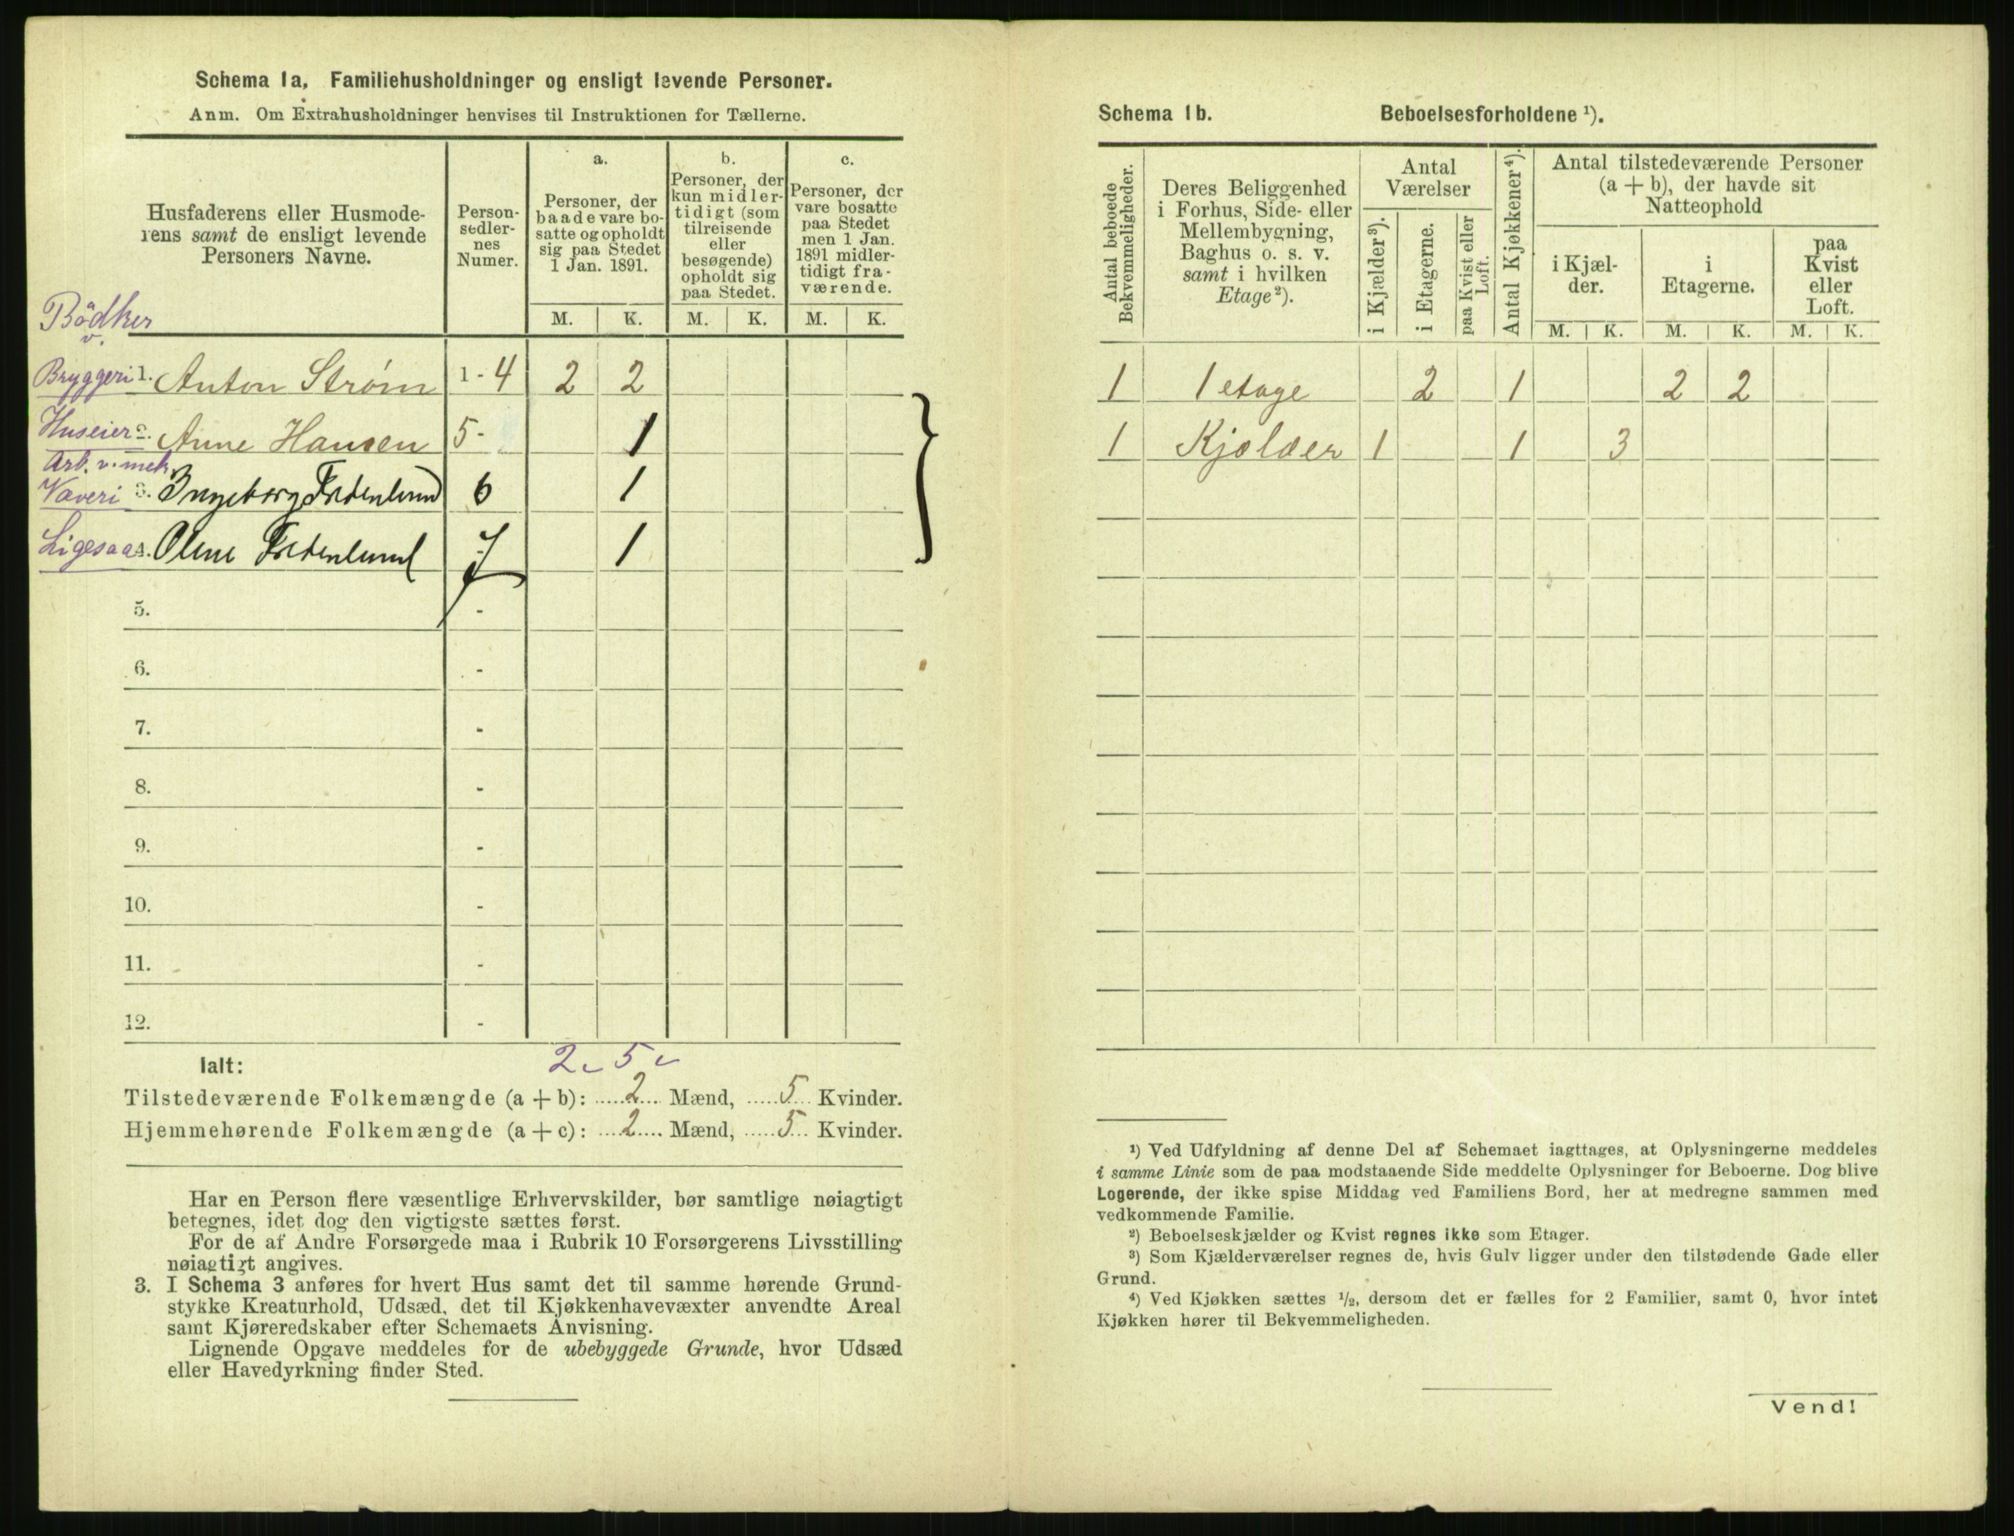 Schema 1a, Familiehusholdninger og ensligt levende Personer.
Anm. Om Extrahusholdninger henvises til Instruktionen for Tællerne.
Husfaderens eller Husmode-
rens samt de ensligt levende
Personers Navne.
Person-
sedler-
nes
Numer.
a.
Personer, der
baade vare bo-
satte og opholdt
sig paa Stedet
1 Jan. 1891.
b.
Personer, der
kun midler-
tidigt (som
tilreisende
eller
besøgende)
opholdt sig
paa Stedet.
c.
Personer, der
vare bosatte
paa Stedet
men 1 Jan.
1891 midler-
tidigt fra-
værende.
M. K. M. K. M. K.
Bödker
v.
Bryggeri 1. Anton Strøm 1-4 2 2
Huseier 2. Anne Hansen 5- 1
Arb. v. mek.
Væveri 3. Ingeborg Fredenlund 6 1
Ligesaa 4. Oline Fredenlund 7 1
5. -
6. -
7. -
8. -
9. -
10. -
11. -
12. -
Ialt:
2 5
Tilstedeværende Folkemængde (a + b): 2 Mænd, 5 Kvinder.
Hjemmehørende Folkemængde (a + c): 2 Mænd, 5 Kvinder.
Har en Person flere væsentlige Erhvervskilder, bør samtlige nøiagtigt
betegnes, idet dog den vigtigste sættes først.
For de af Andre Forsørgede maa i Rubrik 10 Forsørgerens Livsstilling
nøiagtigt angives.
3. I Schema 3 anføres for hvert Hus samt det til samme hørende Grund-
stykke Kreaturhold, Udsæd, det til Kjøkkenhavevæxter anvendte Areal
samt Kjøreredskaber efter Schemaets Anvisning.
Lignende Opgave meddeles for de ubebyggede Grunde, hvor Udsæd
eller Havedyrkning finder Sted.
Schema 1b. Beboelsesforholdene ¹).
Antal beboede
Bekvemmeligheder.
Deres Beliggenhed
i Forhus, Side- eller
Mellembygning,
Baghus o. s. v.
samt i hvilken
Etage ²).
Antal
Værelser
i Kjælder ³).
i Etagerne.
paa Kvist eller
Loft.
Antal Kjøkkener ⁴).
Antal tilstedeværende Personer
(a + b), der havde sit
Natteophold
i Kjæl-
der.
i
Etagerne.
paa
Kvist
eller
Loft.
M. K. M. K. M. K.
1 1 etage 2 1 2 2
1 Kjelder 1 1 3
¹) Ved Udfyldning af denne Del af Schemaet iagttages, at Oplysningerne meddeles
i samme Linie som de paa modstaaende Side meddelte Oplysninger for Beboerne. Dog blive
Logerende, der ikke spise Middag ved Familiens Bord, her at medregne sammen med
vedkommende Familie.
²) Beboelseskjælder og Kvist regnes ikke som Etager.
³) Som Kjælderværelser regnes de, hvis Gulv ligger under den tilstødende Gade eller
Grund.
⁴) Ved Kjøkken sættes ½, dersom det er fælles for 2 Familier, samt 0, hvor intet
Kjøkken hører til Bekvemmeligheden.
Vend!